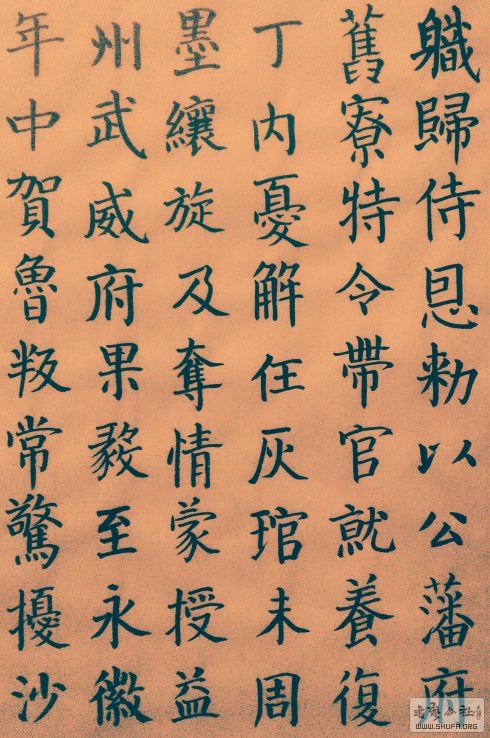 職歸侍恩勑以公藩府
舊寮特令帶官就養復
丁内憂解任灰琯未周
墨縗旋及奪情蒙授益
州武威府果毅至永徽
年中賀魯叛常驚擾沙
WWW.SHUFA.ORG